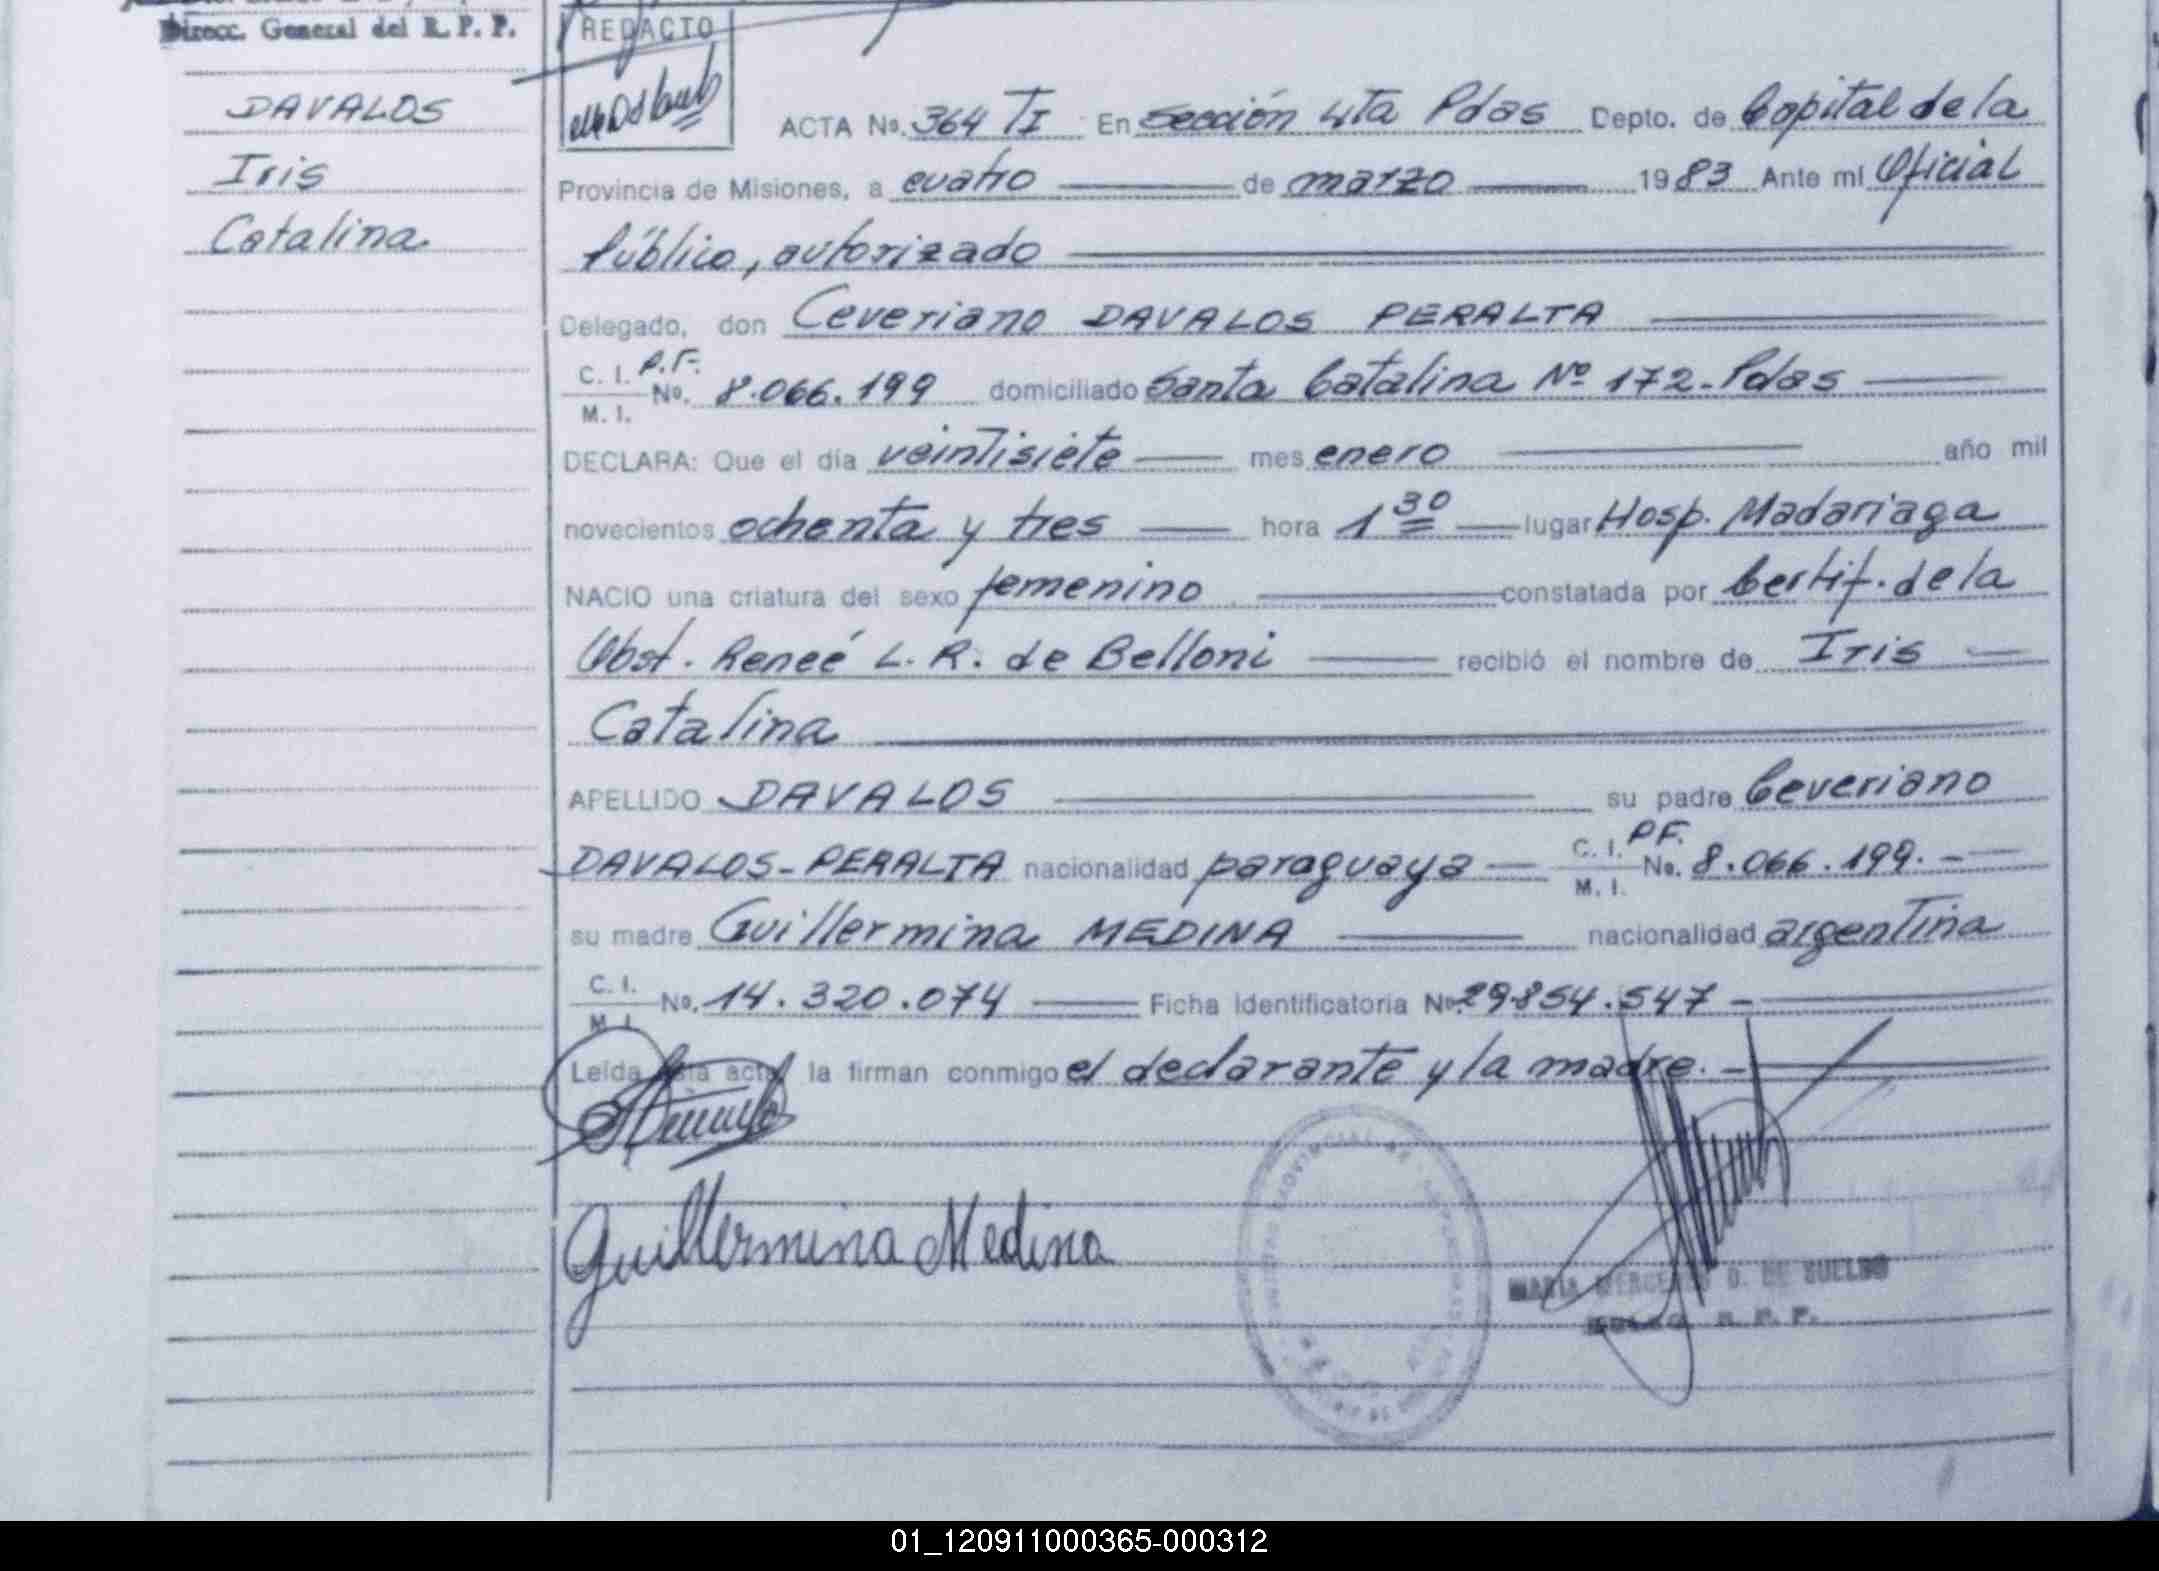 Direcc. General del R. P. P.
DAVALOS
Iris
Catalina
REDACTO
ACTA No. 364 TI En Sección 4ta Pdas Depto. de Capital de la
Provincia de Misiones, a cuatro de marzo 1983 Ante mi Oficial
Público, autorizado
Delegado, don Ceveriano DAVALOS PERALTA
C. I. P.F.
M. I. No. 8.066.199 domiciliado Santa Catalina Nº 172 - Pdas
DECLARA: Que el día veintisiete mes enero año mil
novecientos ochenta y tres hora 1 30 lugar Hosp. Madariaga
NACIO una criatura del sexo femenino constatada por Certif. de la
Obst. Reneé L. R. de Belloni recibió el nombre de Iris
Catalina
APELLIDO DAVALOS su padre Ceveriano
DAVALOS - PERALTA nacionalidad paraguaya C. I. PF. M. I. No. 8.066.199. -
su madre Guillermina MEDINA nacionalidad argentina
C. I. M. I. No. 14.320.074 Ficha Identificatoria No. 29.854.547 -
Leída esta acta la firman conmigo el declarante y la madre. -
Guillermina Medina
MARIA MERCEDES G. DE SUELDO
R. P. P.
01_120911000365-000312